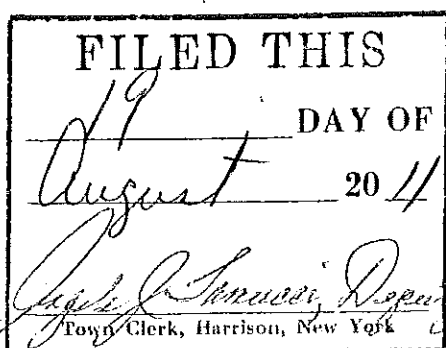 FILED THIS
19 DAY OF
August 20 11
Town Clerk, Harrison, New York